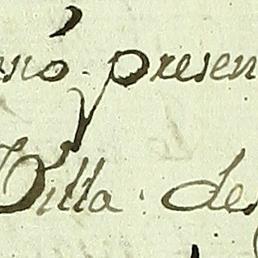 nó presen
Villa des